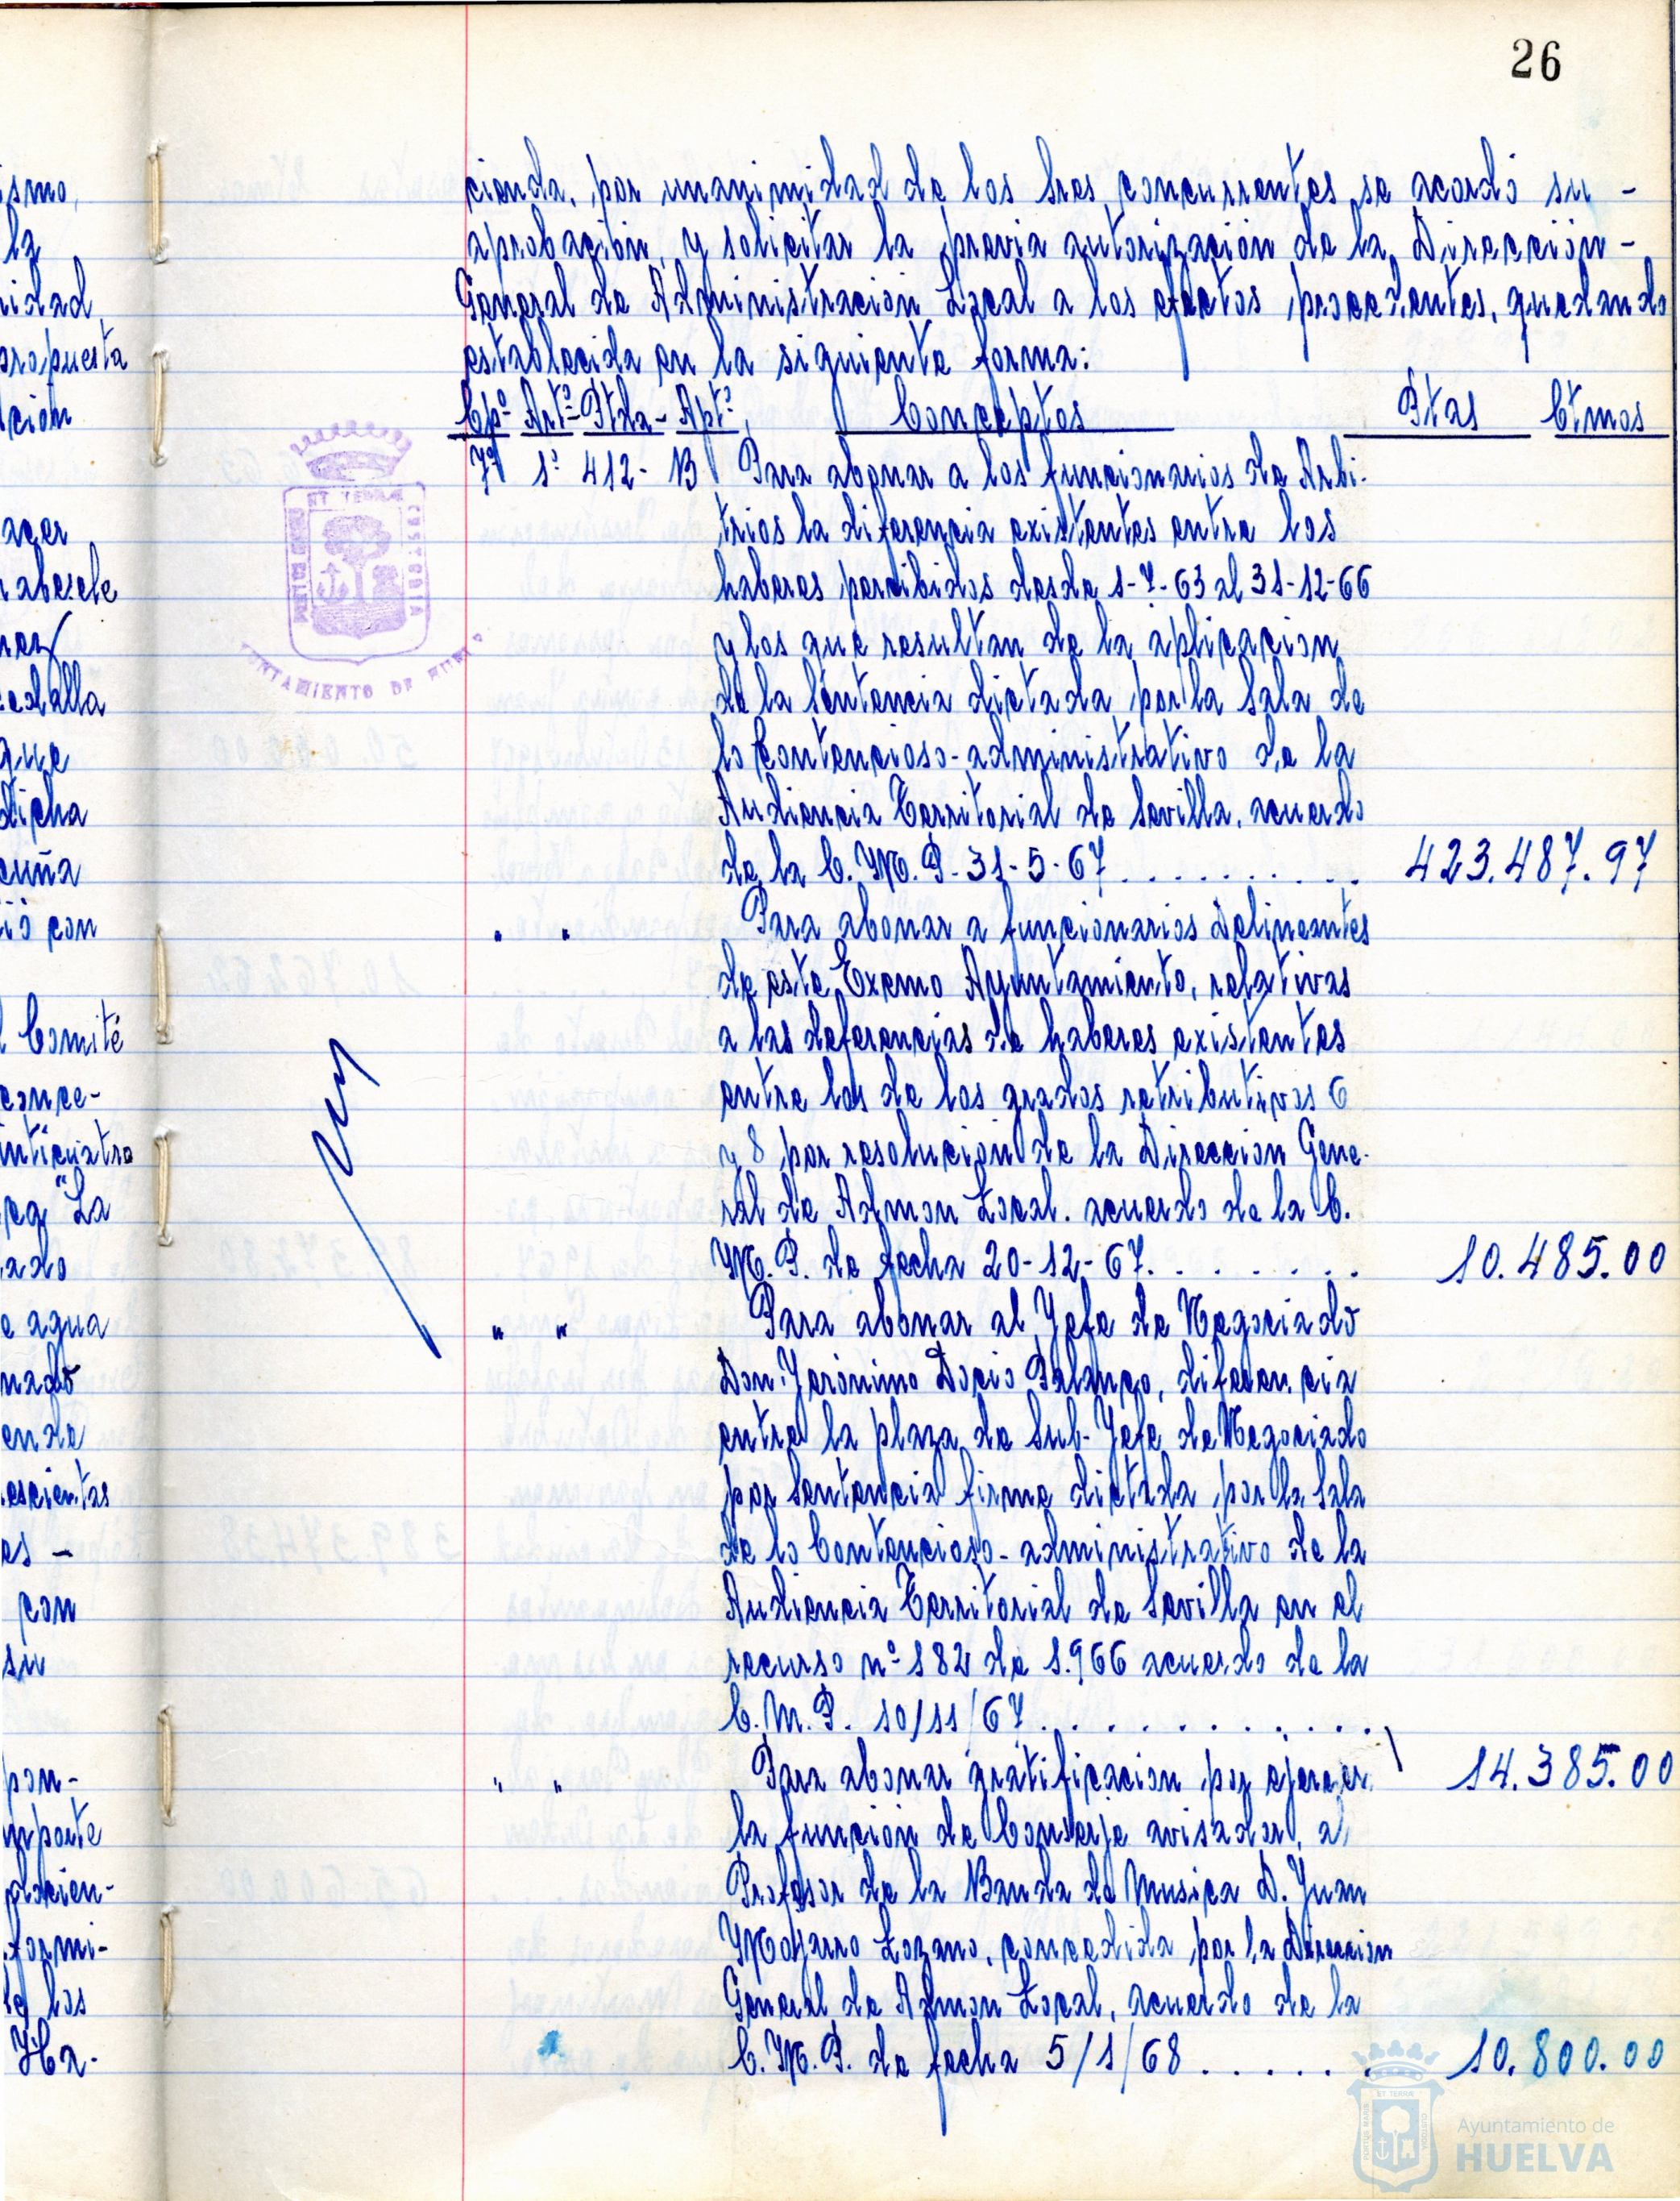 26
cienda, por unanimidad de los Sres concurrentes se acordó su -
aprobación, y solicitar la previa autorización de la Dirección -
General de Administracion Local a los efectos procedentes, quedando
establecida en la siguiente forma:
Cpº Artº Ptda - Aptº, Conceptos Ptas Ctmos
7º 1º 412 - B Para abonar a los funcionarios de Arbi-
trios la diferencia existentes entre los
haberes percibidos desde 1-7-63 al 31-12-66
y los que resultan de la aplicacion
de la Sentencia dictada por la Sala de
lo Contencioso-administrativo de la
Audiencia Territorial de Sevilla, acuerdo
de la C. M. P. 31-5-67 . . . . . . . . . . 423.487.97
" " Para abonar a funcionarios Delineantes
de este Excmo Ayuntamiento, relativas
a las deferencias de haberes existentes
entre los de los grados retributivos 6
y 8 por resolucion de la Direccion Gene-
ral de Admon Local. acuerdo de la C.
M. P. de fecha 20-12-67. . . . . . . . 10.485.00
" " Para abonar al Jefe de Negociado
Don Jerónimo Docio Palanco, diferencia
entre la plaza de Sub-Jefe de Negociado
por Sentencia firme dictada por la Sala
de lo Contencioso-administrativo de la
Audiencia Territorial de Sevilla en el
recurso nº 182 de 1.966 acuerdo de la
C. M. P. 10/11/67. . . . . . . . . . .
14.385.00
" " Para abonar gratificacion por ejercer
la función de Conserje avisador, a
Profesor de la Banda de Musica D. Juan
Mojarro Lozano, concedida por la Direccion
General de Admon Local, acuerdo de la
C. M. P. de fecha 5/1/68 . . . . . . 10.800.00
ismo,
la
idad,
propuesta
ción
acer
dicha
que
cuña
ió con
l Comité
conce-
"La
ado
e agua
nado
con
su
los
Ha-
PORTUS MARIS ET TERRAE CUSTODIA
AYUNTAMIENTO DE HUELVA
Ayuntamiento de
HUELVA